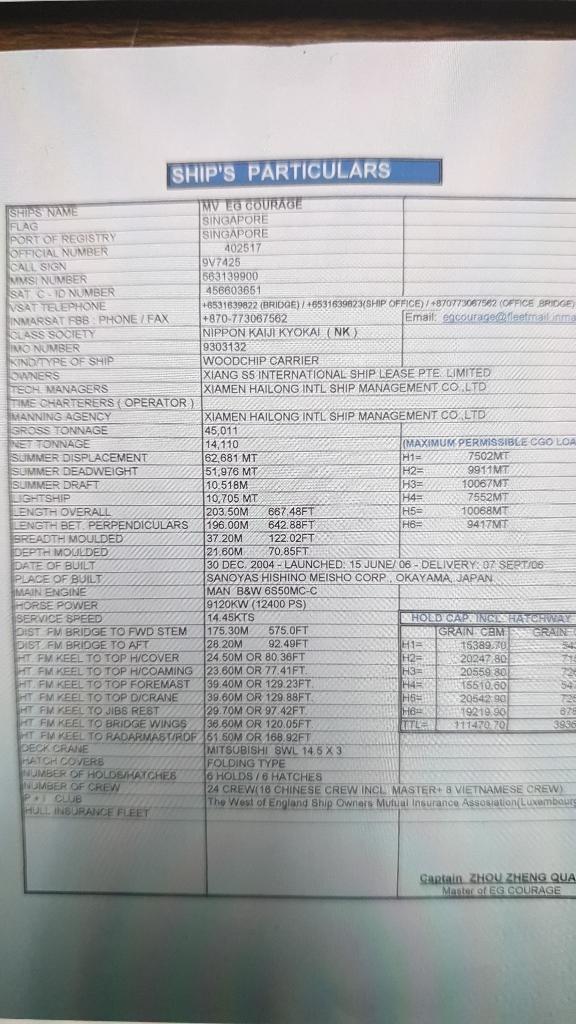 SHIP'S PARTICULARS
SHIPS NAME MV EG COURAGE
FLAG SINGAPORE
PORT OF REGISTRY SINGAPORE
OFFICIAL NUMBER 402517
CALL SIGN 9V7425
MMSI NUMBER 563139900
SAT C - ID NUMBER 456603651
VSAT TELEPHONE +6531639822 (BRIDGE) / +6531639823(SHIP OFFICE) / +870773067562 (OFFICE ,BRIDGE)
INMARSAT FBB : PHONE / FAX +870-773067562 Email: egcourage@fleetmail.inma
CLASS SOCIETY NIPPON KAIJI KYOKAI ( NK )
IMO NUMBER 9303132
KIND/TYPE OF SHIP WOODCHIP CARRIER
OWNERS XIANG S5 INTERNATIONAL SHIP LEASE PTE. LIMITED
TECH. MANAGERS XIAMEN HAILONG INTL SHIP MANAGEMENT CO.,LTD
TIME CHARTERERS ( OPERATOR )
MANNING AGENCY XIAMEN HAILONG INTL SHIP MANAGEMENT CO.,LTD
GROSS TONNAGE 45,011
NET TONNAGE 14,110 (MAXIMUM PERMISSIBLE CGO LOA
SUMMER DISPLACEMENT 62,681 MT H1= 7502MT
SUMMER DEADWEIGHT 51,976 MT H2= 9911MT
SUMMER DRAFT 10.518M H3= 10067MT
LIGHTSHIP 10,705 MT H4= 7552MT
LENGTH OVERALL 203.50M 667.48FT H5= 10068MT
LENGTH BET. PERPENDICULARS 196.00M 642.88FT H6= 9417MT
BREADTH MOULDED 37.20M 122.02FT
DEPTH MOULDED 21.60M 70.85FT
DATE OF BUILT 30 DEC. 2004 - LAUNCHED: 15 JUNE/ 06 - DELIVERY: 07 SEPT/06
PLACE OF BUILT SANOYAS HISHINO MEISHO CORP., OKAYAMA, JAPAN
MAIN ENGINE MAN B&W 6S50MC-C
HORSE POWER 9120KW (12400 PS)
SERVICE SPEED 14.45KTS HOLD CAP. INCL. HATCHWAY
DIST. FM BRIDGE TO FWD STEM 175.30M 575.0FT GRAIN CBM GRAIN
DIST. FM BRIDGE TO AFT 28.20M 92.49FT H1= 15389.70
HT. FM KEEL TO TOP H/COVER 24.50M OR 80.36FT H2= 20247.80
HT FM KEEL TO TOP H/COAMING 23.60M OR 77.41FT H3= 20559.80
HT. FM KEEL TO TOP FOREMAST 39.40M OR 129.23FT H4= 15510.60
HT. FM KEEL TO TOP D/CRANE 39.60M OR 129.88FT H5= 20542.90
HT. FM KEEL TO JIBS REST 29.70M OR 97.42FT H6= 19219.90
HT. FM KEEL TO BRIDGE WINGS 36.60M OR 120.05FT TTL= 111470.70
HT. FM KEEL TO RADARMAST/RDF 51.50M OR 168.92FT
DECK CRANE MITSUBISHI SWL 14.5 X 3
HATCH COVERS FOLDING TYPE
NUMBER OF HOLDS/HATCHES 6 HOLDS / 6 HATCHES
NUMBER OF CREW 24 CREW(16 CHINESE CREW INCL. MASTER+ 8 VIETNAMESE CREW)
P + I CLUB The West of England Ship Owners Mutual Insurance Assosiation(Luxembourg
HULL INSURANCE FLEET
Captain ZHOU ZHENG QUA
Master of EG COURAGE